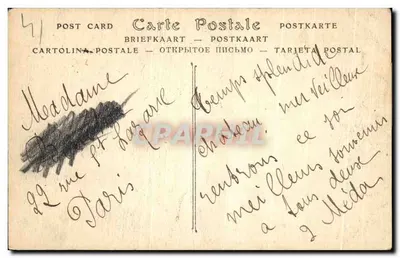 4/
POST CARD Carte Postale POSTKARTE
BRIEFKAART — POSTKAART
CARTOLINA POSTALE — ОТКРЫТОЕ ПИСЬМО — TARJETA POSTAL
Madame
22 rue St Lazare
Paris
temps splendide
chateau merveilleux
rentrons ce soir
meilleurs souvenirs
a tous deux
EPARPOLL